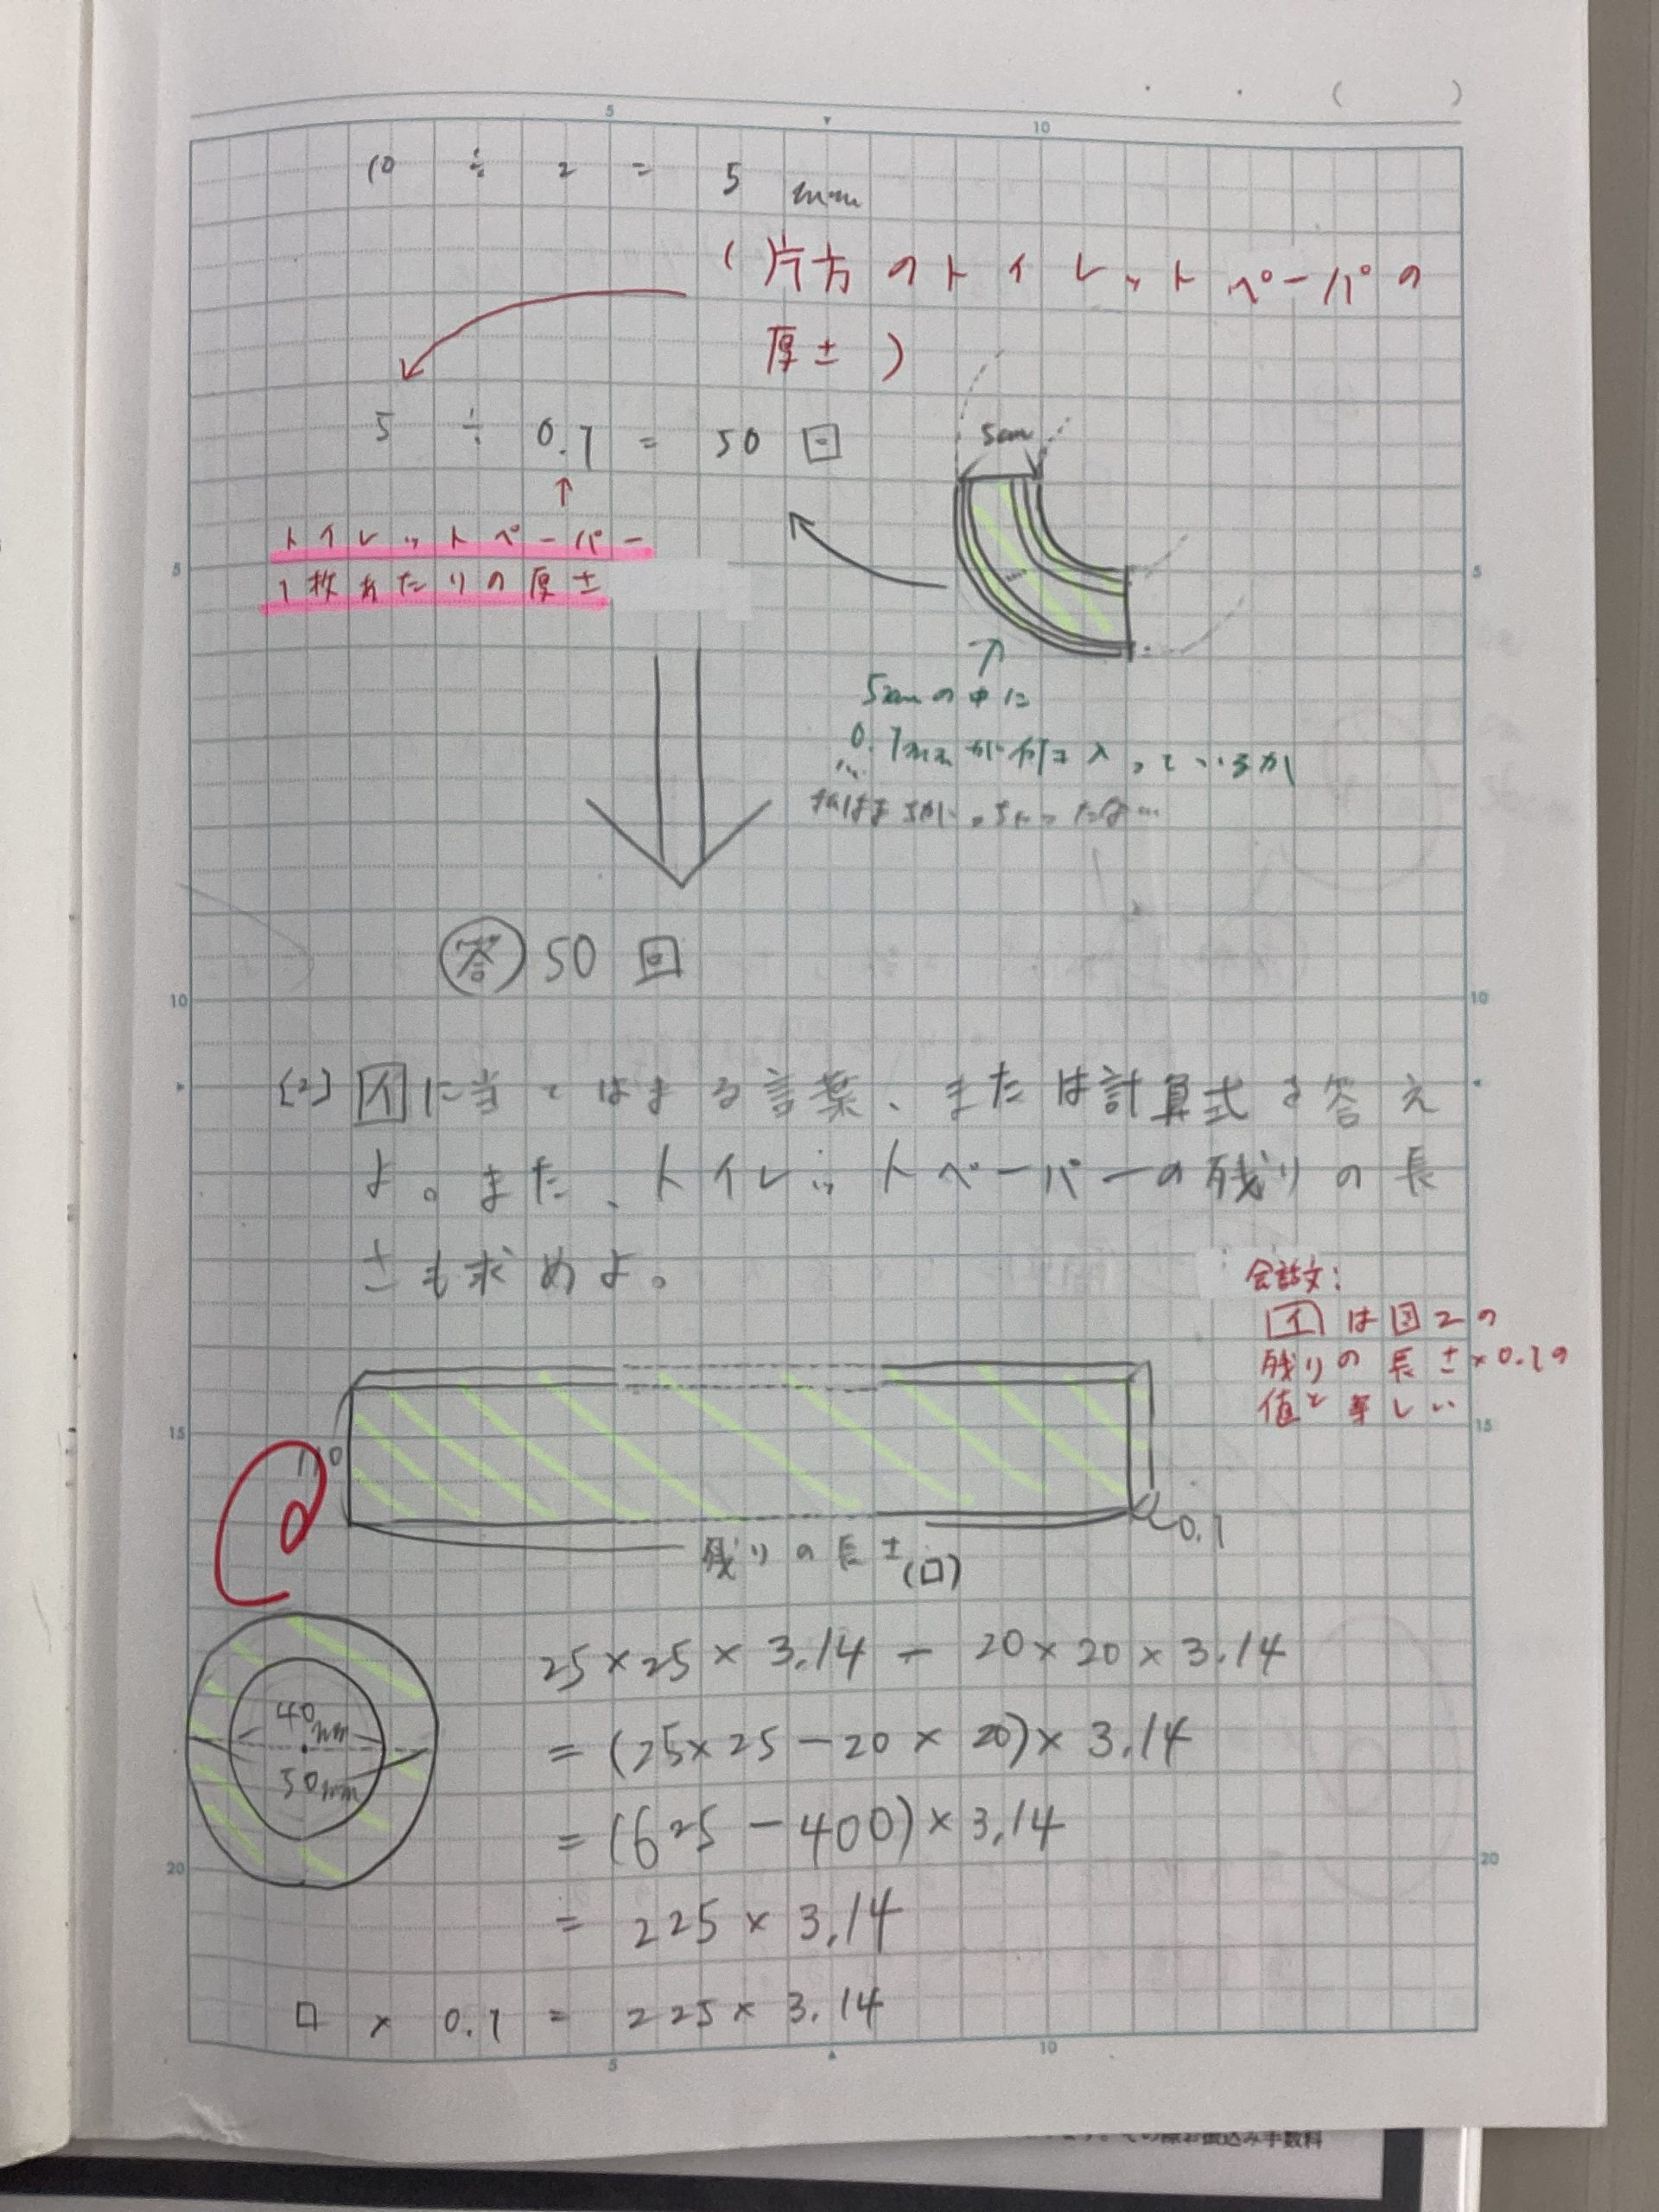 10 ÷ 2 = 5 mm
(片方のトイレットペーパの
厚さ)
5 ÷ 0.1 = 50 回
↑
トイレットペーパー
1枚あたりの厚さ
5mm
5mmの中に
0.1mmが何コ入っているか
答 50 回
(2) イに当てはまる言葉、または計算式を答え
よ。また、トイレットペーパーの残りの長
さも求めよ。
会話文:
イは図2の
残りの長さ×0.1の
値と等しい
110
0.1
残りの長さ(口)
40mm
50mm
25×25×3.14 - 20×20×3.14
= (25×25-20×20)×3.14
= (625-400)×3.14
= 225×3.14
□ × 0.1 = 225×3.14